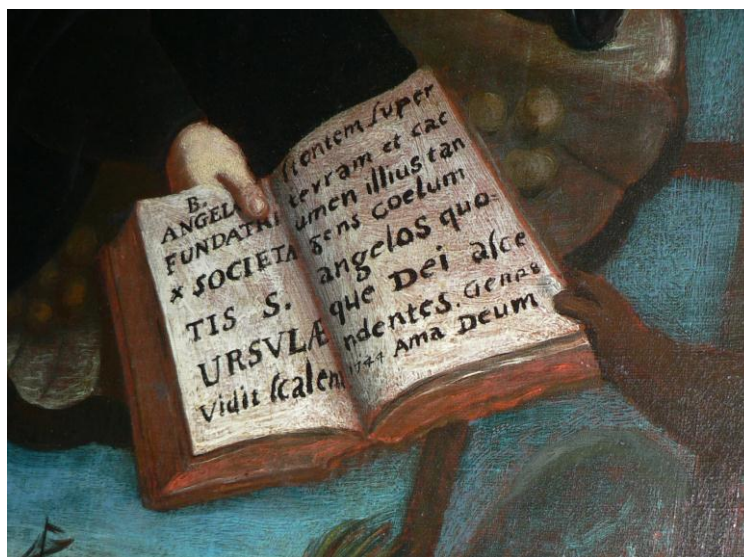 B.
ANGELA
FUNDATRI
X SOCIETA
TIS S.
URSVLÆ
Vidit ſcalem
ſtontem ſuper
terram et cac
umen illius tan
gens coelum
angelos quo=
que Dei aſce
ndentes.
1744 Ama Deum